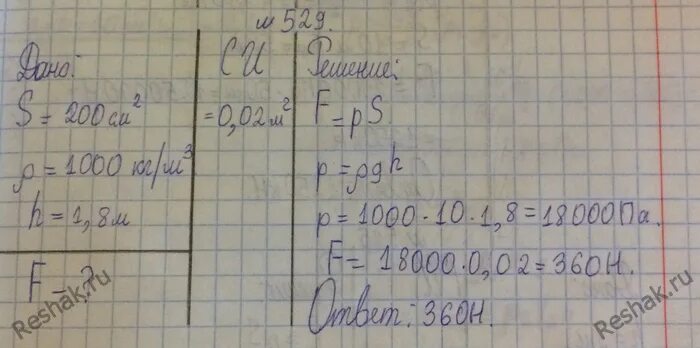 №529.
Дано:
S = 200 см²
ρ = 1000 кг/м³
h = 1,8 м
F – ?
СИ
= 0,02 м²
Решение:
F = pS.
p = ρgh
p = 1000 · 10 · 1,8 = 18000 Па.
F = 18000 · 0,02 = 360 Н.
Ответ: 360 Н.
Reshak.ru
Reshak.ru